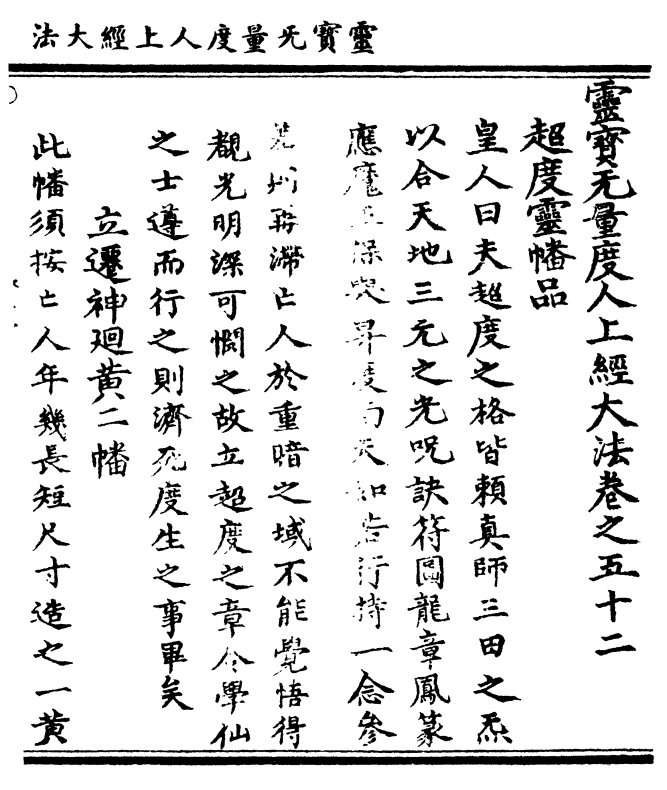 靈寶无量度人上經大法
靈寶无量度人上經大法卷之五十二
超度靈幡品
皇人曰夫超度之格皆賴真師三田之炁
以合天地三元之光呪訣符圖龍章鳳篆
應魔王保舉昇度南天如若行持一念參
差則再滯亡人於重暗之域不能覺悟得
覩光明深可憫之故立超度之章令學仙
之士遵而行之則濟死度生之事畢矣
立遷神廻黃二幡
此幡須按亡人年幾長短尺寸造之一黃